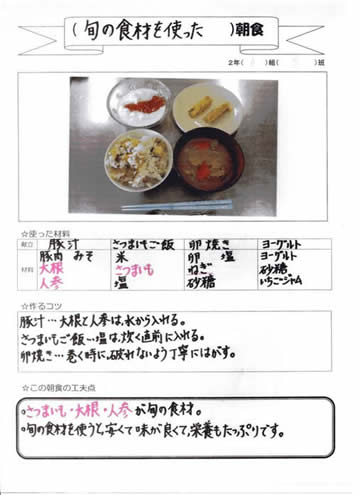 （旬の食材を使った　）朝食
2年（　）組（　）班
☆使った材料
献立 豚汁 さつまいもご飯 卵焼き ヨーグルト
材料 豚肉 みそ 米 卵 塩 ヨーグルト
大根 さつまいも ねぎ 砂糖
人参 塩 砂糖 いちごジャム
☆作るコツ
豚汁…大根と人参は、水から入れる。
さつまいもご飯…塩は、炊く直前に入れる。
卵焼き…巻く時に、破れないよう丁寧にはがす。
☆この朝食の工夫点
○さつまいも・大根・人参が旬の食材。
○旬の食材を使うと、安くて味が良くて、栄養もたっぷりです。